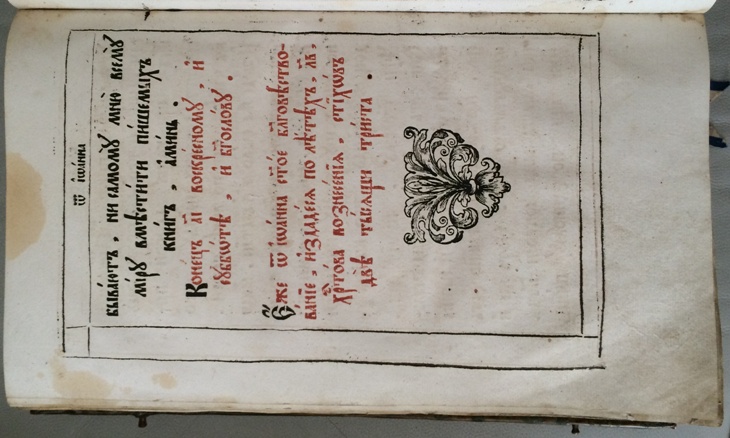 ѿ іѡанна
бываютъ, ни самомꙋ мню всемꙋ
мірꙋ вмѣстити пишемыхъ
книгъ, аминь.
Конецъ аі воскресномꙋ, и
сꙋббѡтѣ, и бг҃ослову.
Е҆́же ѿ іѡанна ст҃ое бл҃говѣство-
ваніе, издадеся по лѣтѣхъ, лв,
хр҃това вознесенія, стіхѡвъ
двѣ тысящи триста.